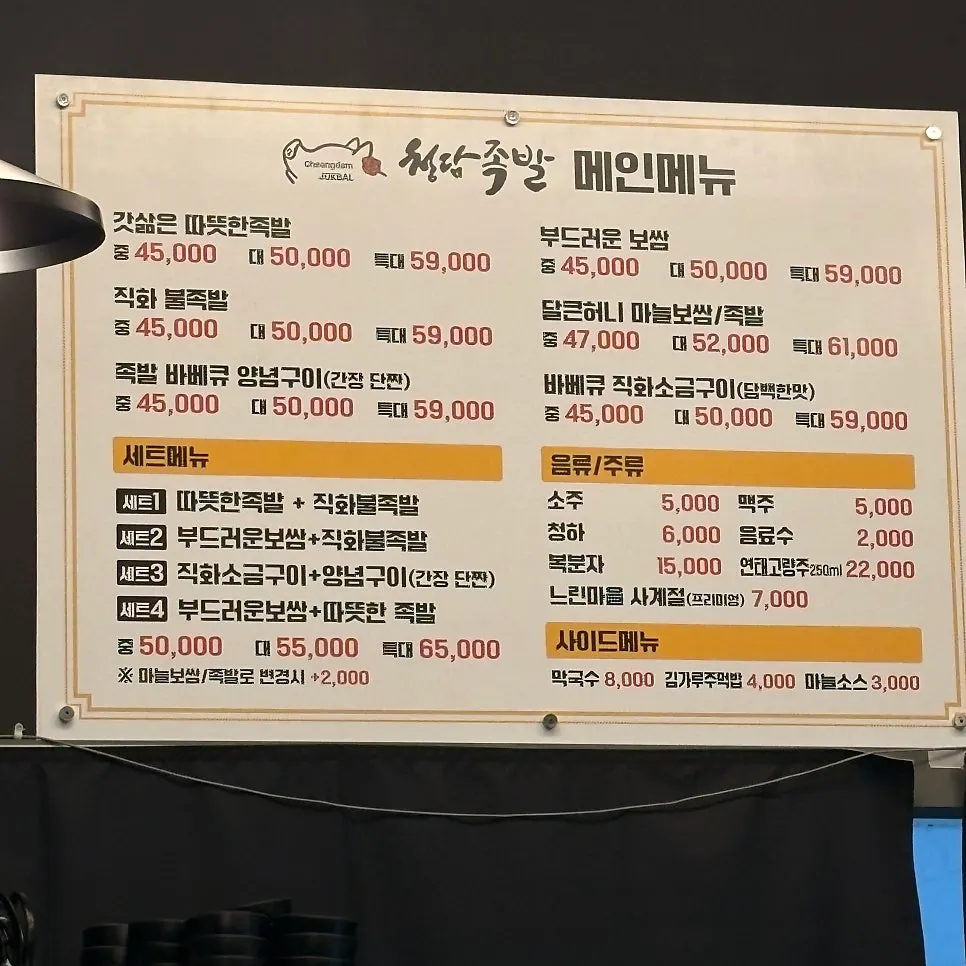 Cheongdam
JOKBAL
청담족발 메인메뉴
갓삶은 따뜻한족발
중 45,000 대 50,000 특대 59,000
직화 불족발
중 45,000 대 50,000 특대 59,000
족발 바베큐 양념구이(간장 단짠)
중 45,000 대 50,000 특대 59,000
세트메뉴
세트1 따뜻한족발 + 직화불족발
세트2 부드러운보쌈+직화불족발
세트3 직화소금구이+양념구이(간장 단짠)
세트4 부드러운보쌈+따뜻한 족발
중 50,000 대 55,000 특대 65,000
※ 마늘보쌈/족발로 변경시 +2,000
부드러운 보쌈
중 45,000 대 50,000 특대 59,000
달큰허니 마늘보쌈/족발
중 47,000 대 52,000 특대 61,000
바베큐 직화소금구이(담백한맛)
중 45,000 대 50,000 특대 59,000
음류/주류
소주 5,000 맥주 5,000
청하 6,000 음료수 2,000
복분자 15,000 연태고량주250ml 22,000
느린마을 사계절(프리미엄) 7,000
사이드메뉴
막국수 8,000 김가루주먹밥 4,000 마늘소스 3,000